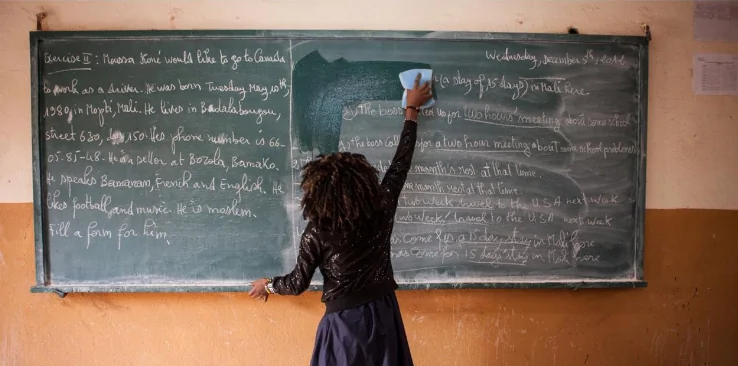 Exercise II : Moussa Koné would like to go to Canada
to work as a driver. He was born Tuesday May 10th
1980, in Mopti, Mali. He lives in Badalabougou,
street 630, door 150. His phone number is 66-
05-85-48. He is a seller at Bozola, Bamako.
He speaks Bamanan, French and English. He
likes football, and music. He is moslem.
Fill a form for him.
Wednesday, December 5th,
(a stay of 15 days) in Mali here.
The boss us for two hours' meeting about some school
the boss for a two hour meeting about some school problems
month's rest at that time.
one month rest at that time.
two week travel to the U.S.A next week
two weeks' travel to the U.S.A next week
has come for a 15 days stay in Mali here
was come for 15 days' stay in Mali here